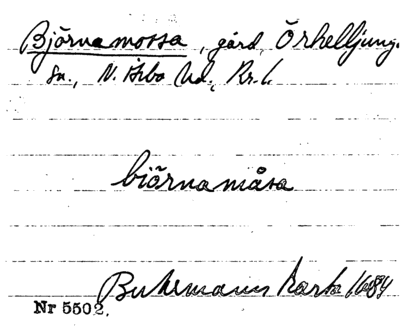 Björnamossa, gård, Örkelljung.
sn., N. Åsbo hd., Kr. l.
björnamåsa
Buhrmanns karta 1684
Nr 5502.